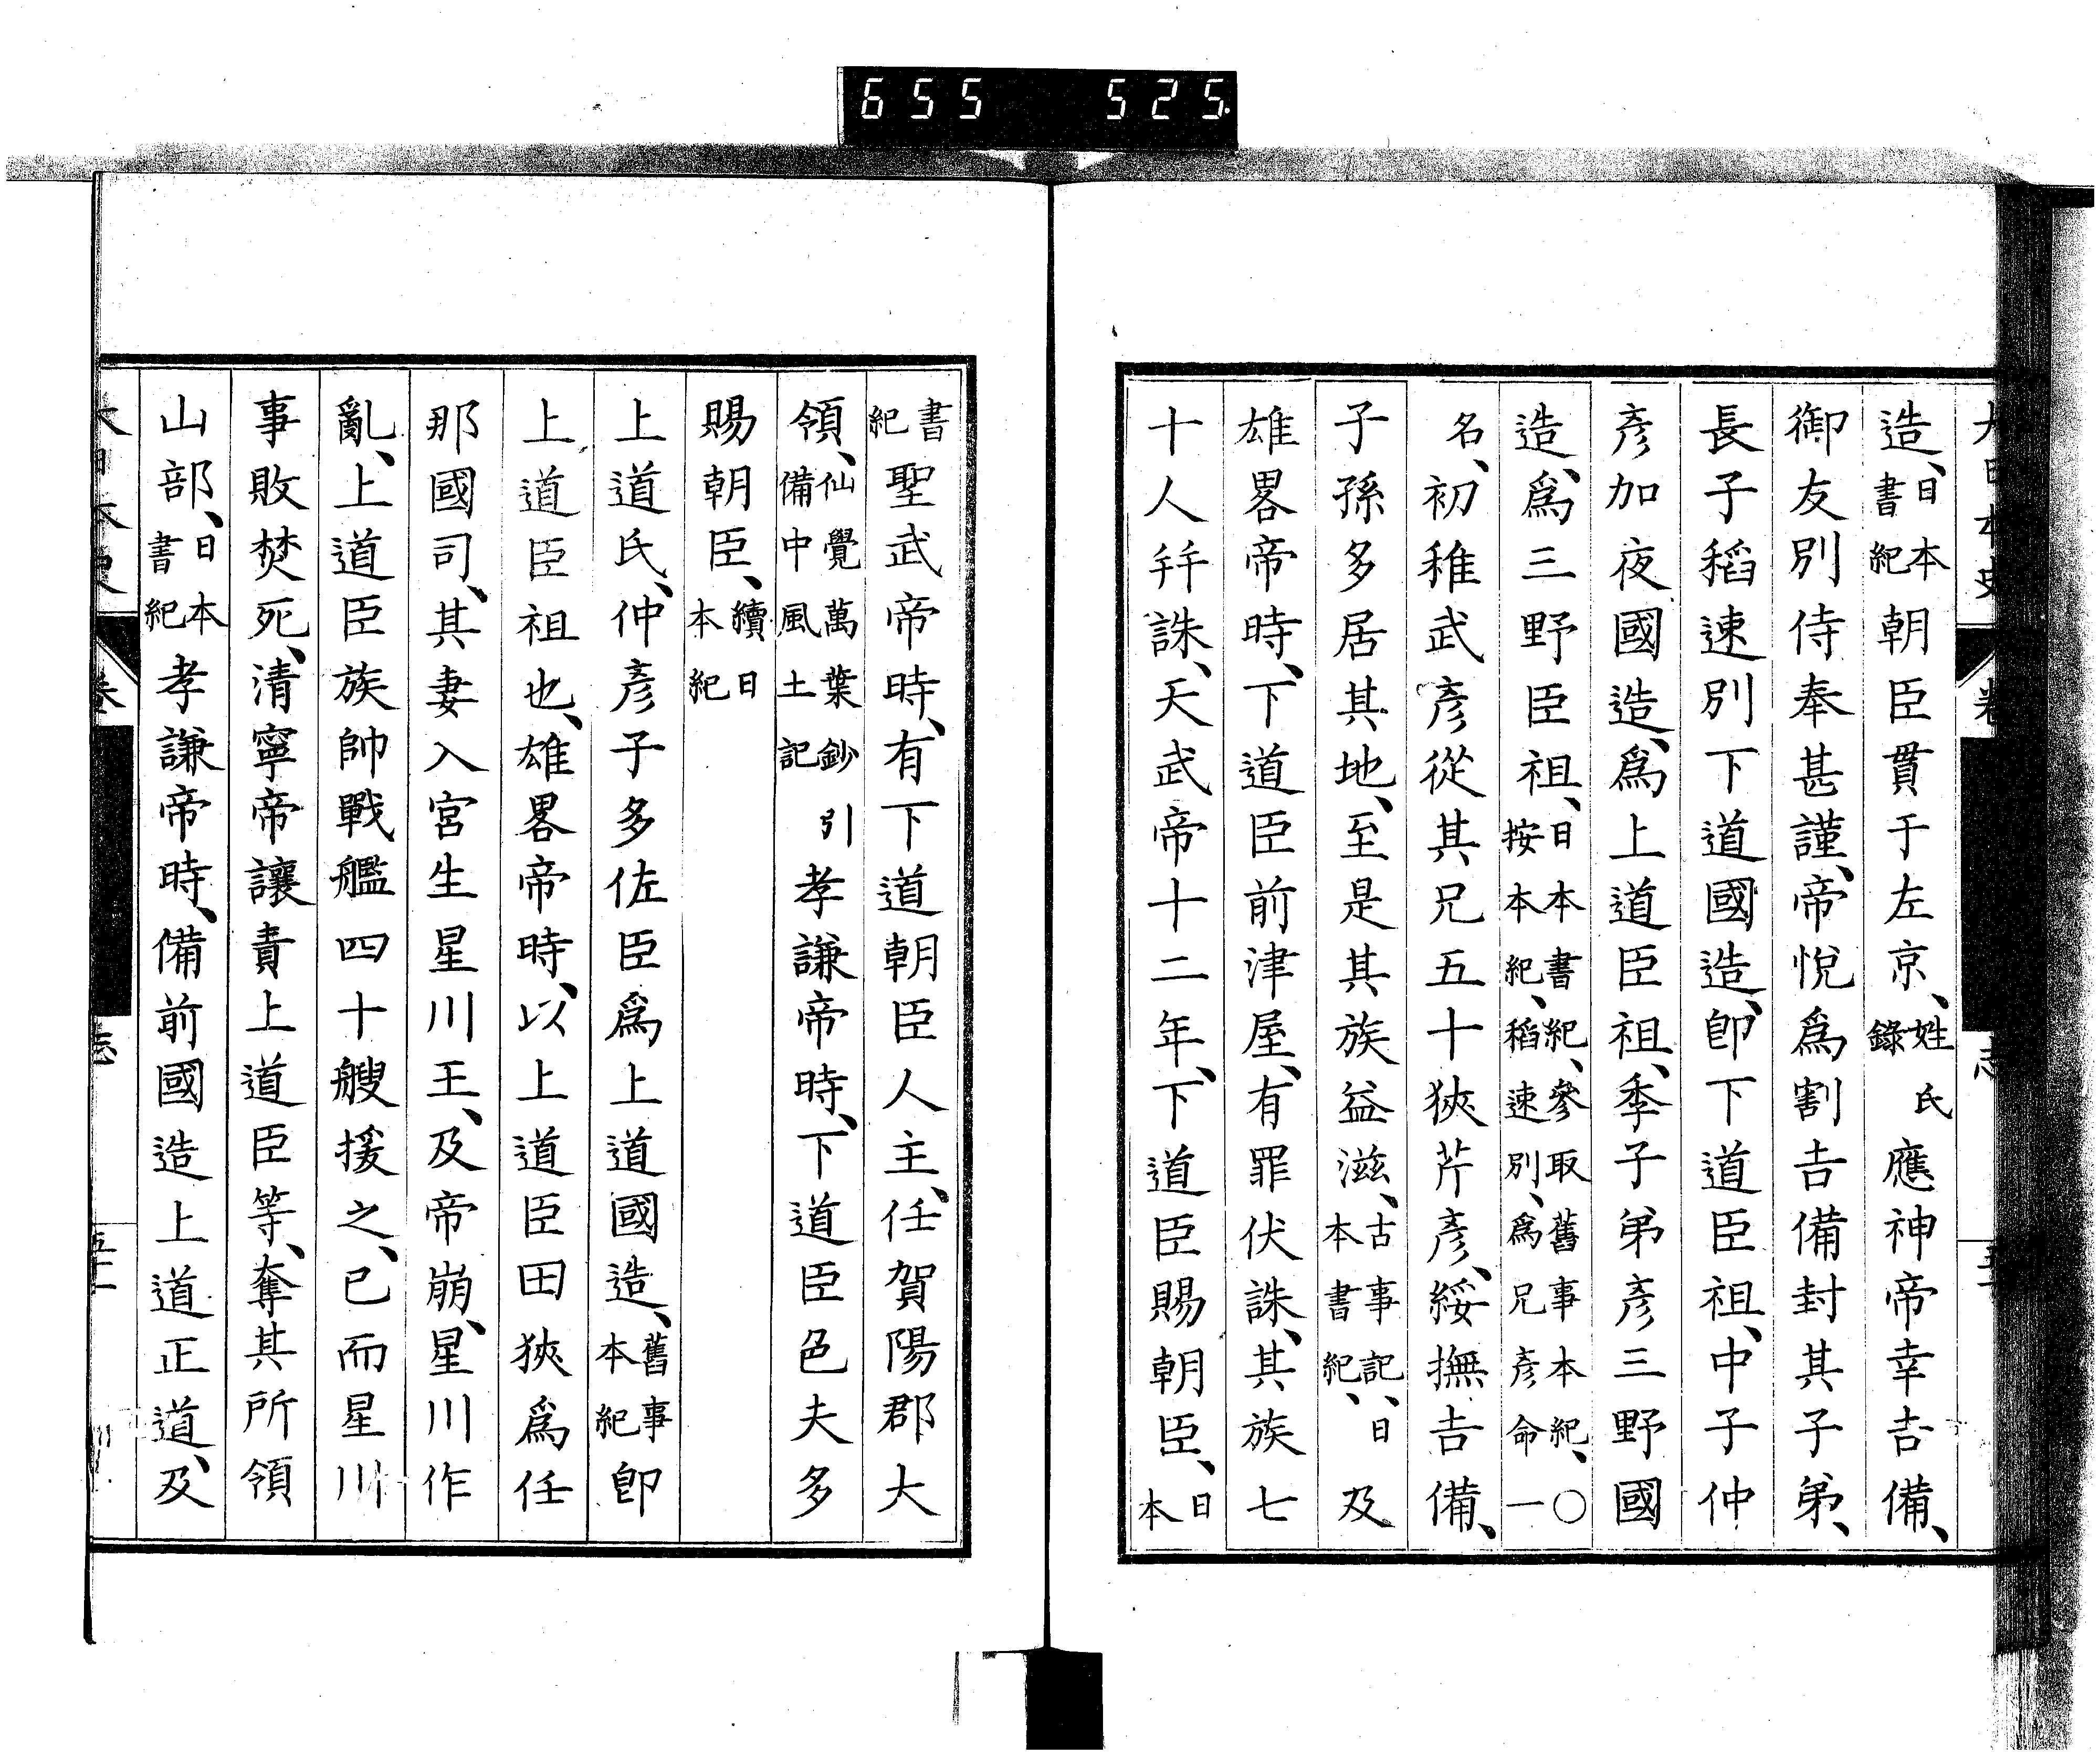 655 525
造、日本書紀朝臣貫于左京、姓氏錄應神帝幸吉備、
御友別侍奉甚謹、帝悅爲割吉備封其子弟、
長子稻速別下道國造、卽下道臣祖、中子仲
彥加夜國造、爲上道臣祖、季子弟彥三野國
造、爲三野臣祖、日本書紀、參取舊事本紀、○按本紀、稻速別、爲兄彥命一
名、初稚武彥從其兄五十狹芹彥、綏撫吉備、
子孫多居其地、至是其族益滋、古事記、日本書紀、及
雄畧帝時、下道臣前津屋、有罪伏誅、其族七
十人幷誅、天武帝十二年、下道臣賜朝臣、日本
書紀聖武帝時、有下道朝臣人主、任賀陽郡大
領、仙覺萬葉鈔引備中風土記孝謙帝時、下道臣色夫多
賜朝臣、續日本紀
上道氏、仲彥子多佐臣爲上道國造、舊事本紀卽
上道臣祖也、雄畧帝時、以上道臣田狹爲任
那國司、其妻入宮生星川王、及帝崩、星川作
亂、上道臣族帥戰艦四十艘援之、已而星川
事敗焚死、清寧帝讓責上道臣等、奪其所領
山部、日本書紀孝謙帝時、備前國造上道正道、及